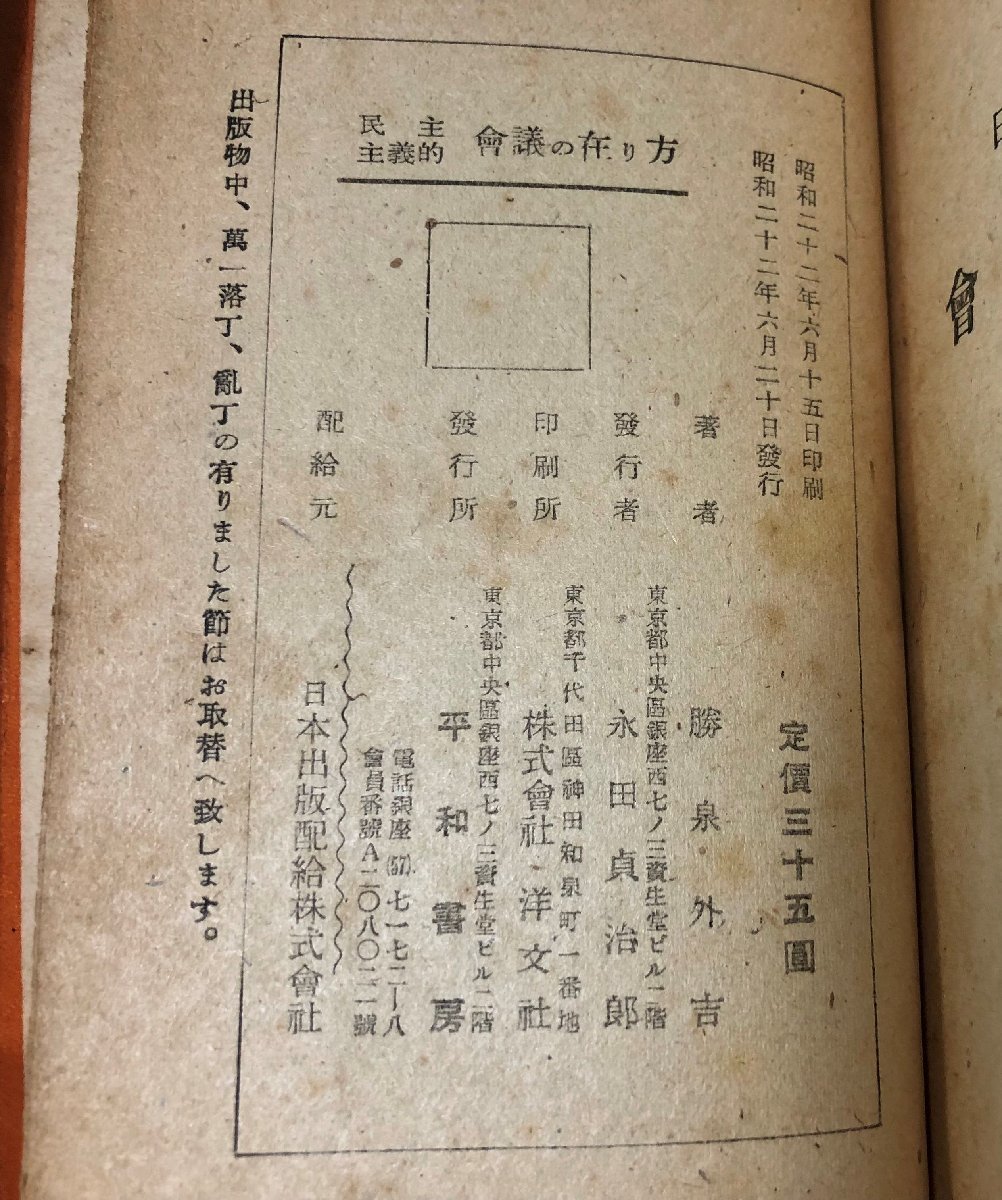 民主主義的 會議の在り方
昭和二十二年六月十五日印刷
昭和二十二年六月二十日發行
定價三十五圓
著者 勝泉外吉
東京都中央區銀座西七ノ三資生堂ビル二階
發行者 永田貞治郎
東京都千代田區神田和泉町一番地
印刷所 株式會社・洋文社
東京都中央區銀座西七ノ三資生堂ビル二階
發行所 平和書房
電話銀座(57)七一七二ー八
會員番號A二〇八〇二一號
配給元 日本出版配給株式會社
出版物中、萬一落丁、亂丁の有りました節はお取替へ致します。
會